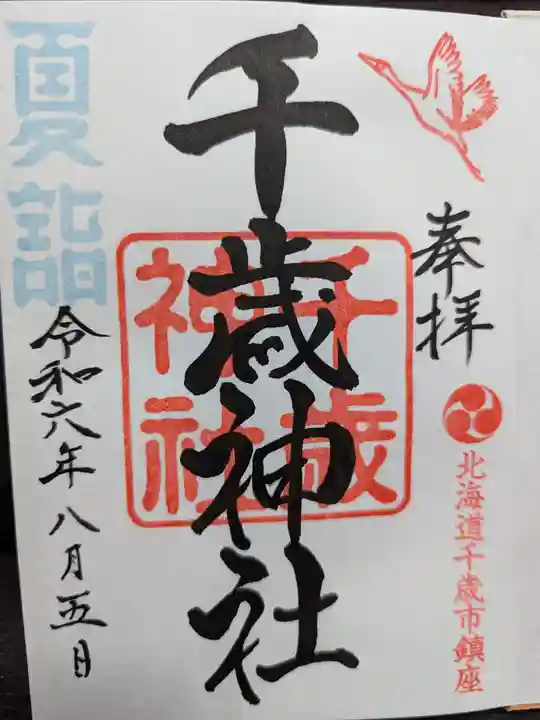 奉拝
北海道千歳市鎮座
千歳神社
千歳
神社
夏詣
令和六年八月五日